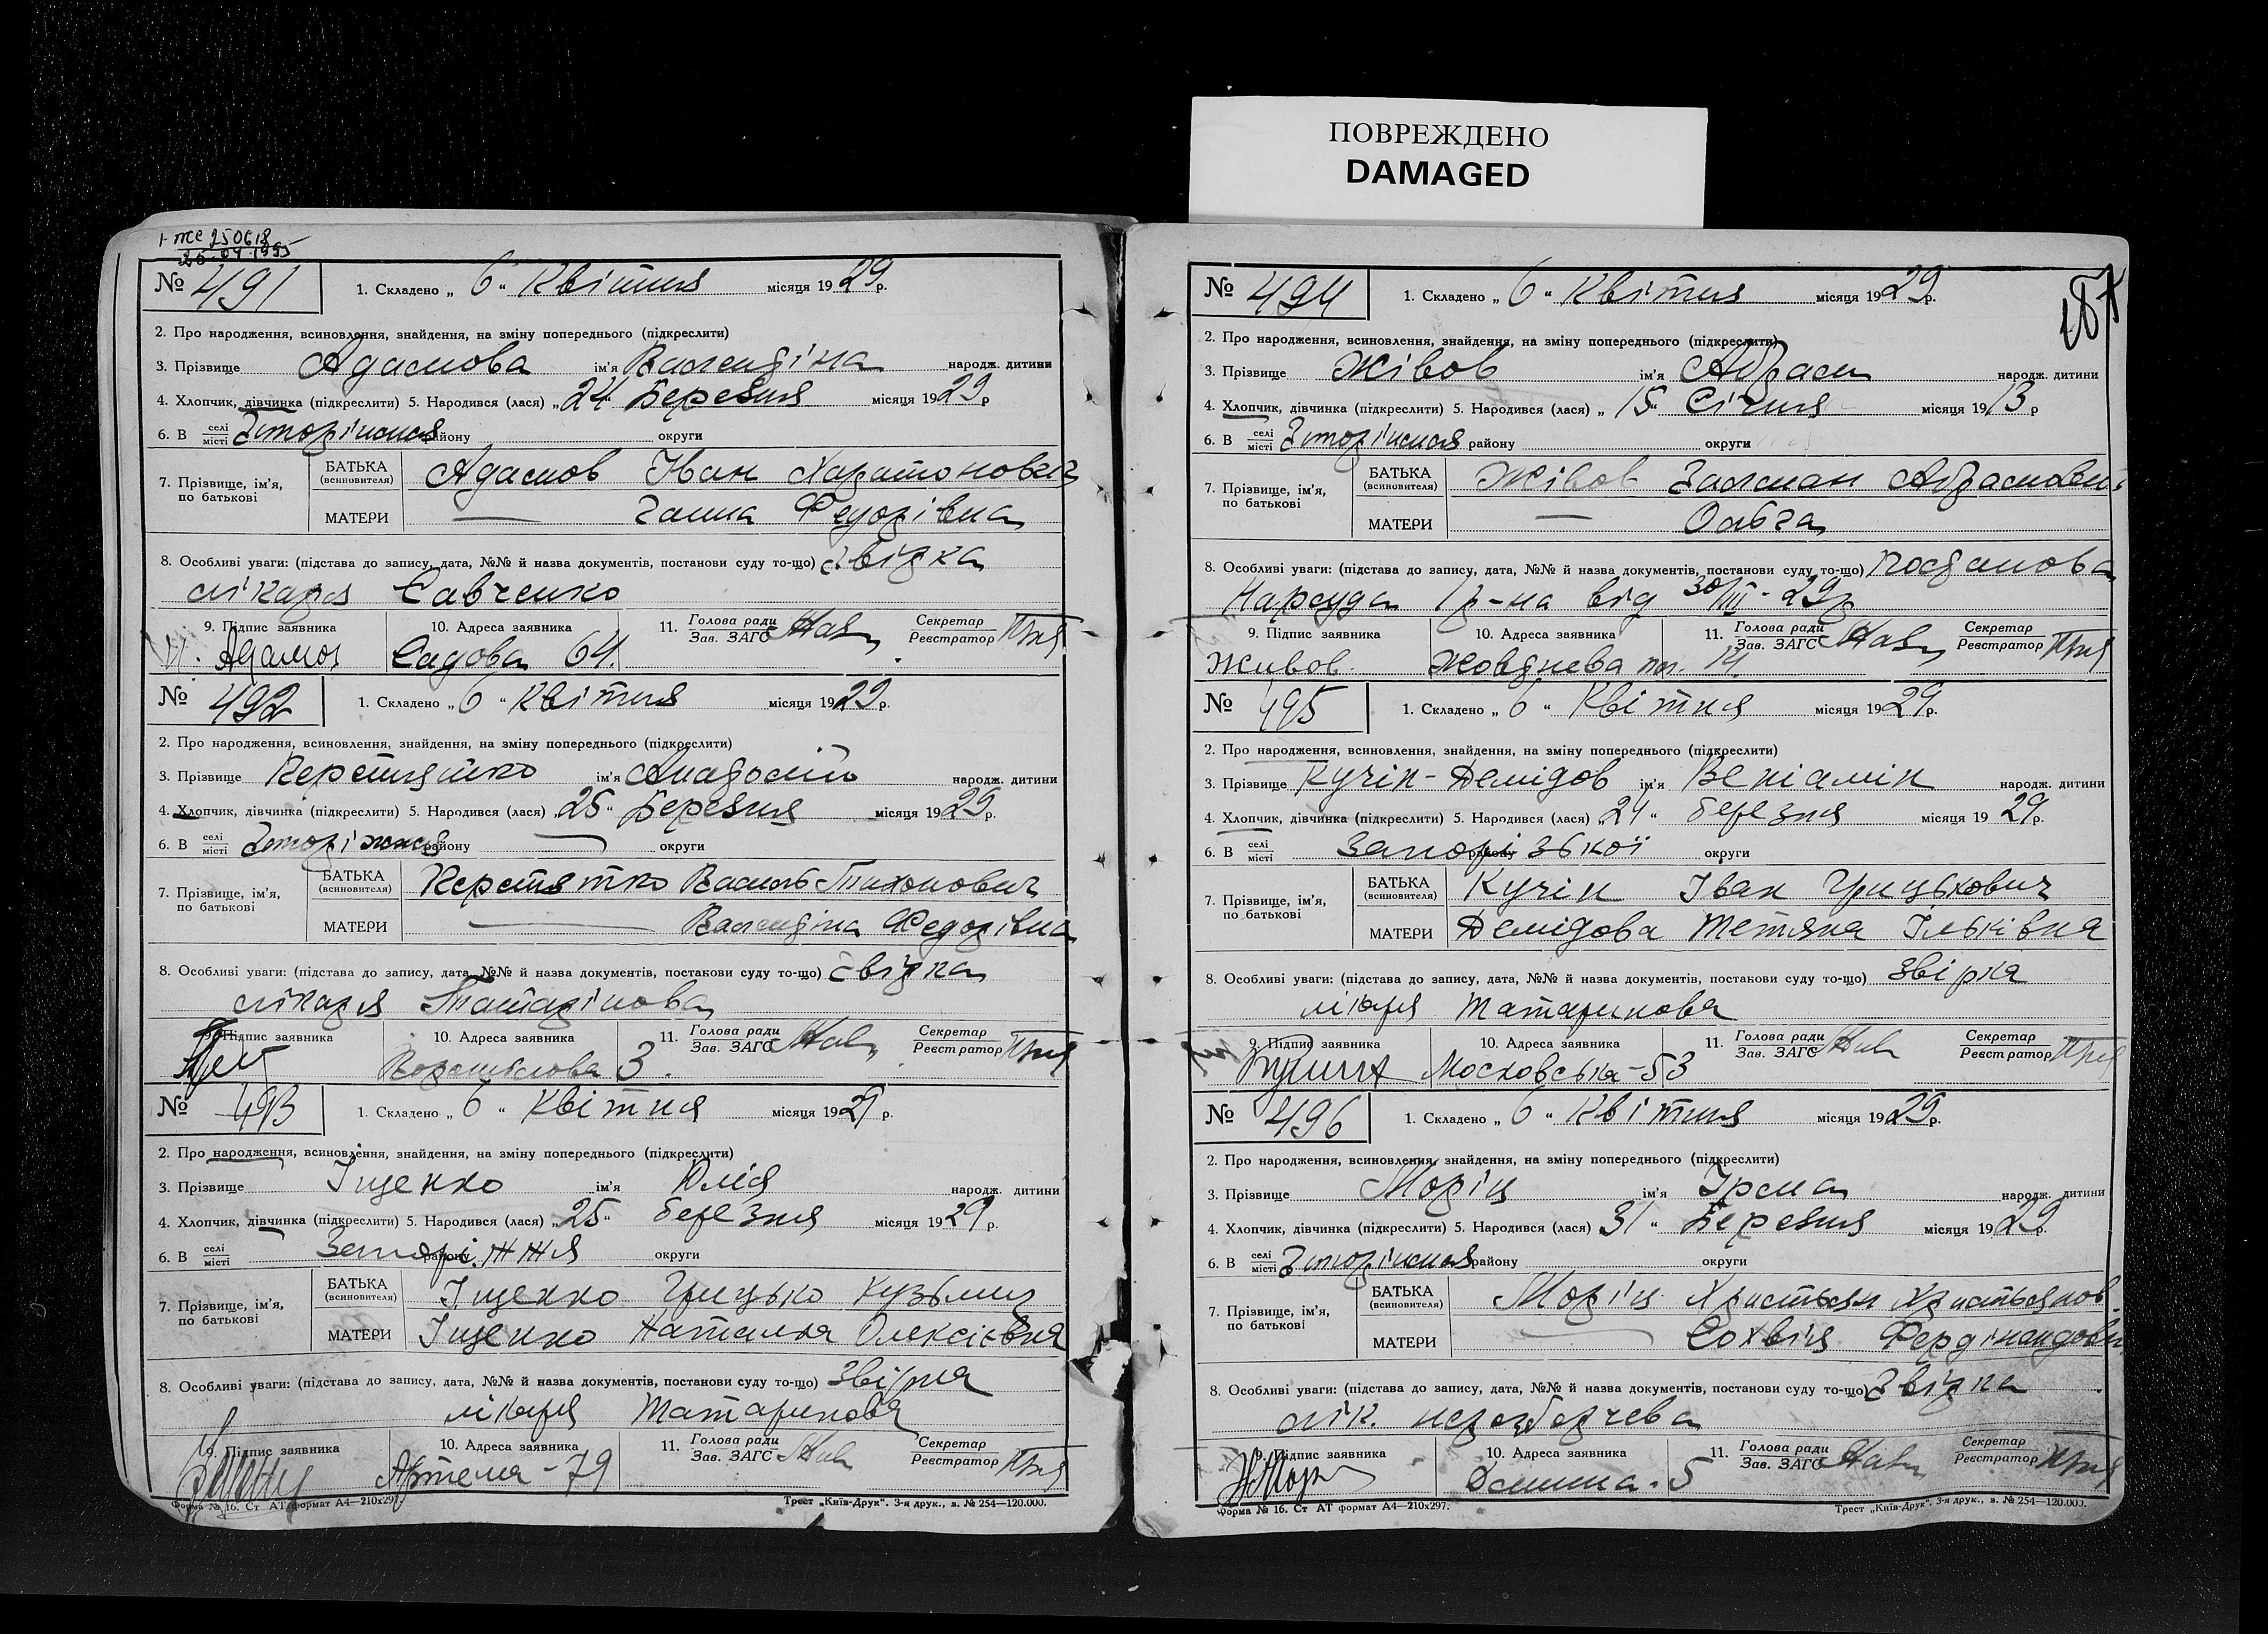 ПОВРЕЖДЕНО
DAMAGED
І-ЖС 250618
25.04.1995
№ 491 1. Складено „ 6 “ Квітня місяця 1929 р.
2. Про народження, всиновлення, знайдення, на зміну попереднього (підкреслити)
3. Прізвище Адамова ім'я Валендіна народж. дитини
4. Хлопчик, дівчинка (підкреслити) 5. Народився (лася) „ 24 Березня місяця 1929 р
6. В селі місті Запоріжжя району округи
7. Прізвище, ім'я, по батькові БАТЬКА (всиновителя) Адамов Іван Харатонович
МАТЕРИ — Ганна Федорівна
8. Особливі уваги: (підстава до запису, дата, №№ й назва документів, постанови суду то-що) звідка
лікаря Савченко
9. Підпис заявника 10. Адреса заявника 11. Голова ради Зав. ЗАГС Секретар Реєстратор
И. Адамов Садова 64.
№ 492 1. Складено „ 6 “ Квітня місяця 1929 р.
2. Про народження, всиновлення, знайдення, на зміну попереднього (підкреслити)
3. Прізвище ім'я народж. дитини
4. Хлопчик, дівчинка (підкреслити) 5. Народився (лася) „ 25 “ Березня місяця 1929 р.
6. В селі місті Запоріжжя району — округи
7. Прізвище, ім'я, по батькові БАТЬКА (всиновителя) Василь Тихонович
МАТЕРИ — Валендіна Федорівна
8. Особливі уваги: (підстава до запису, дата, №№ й назва документів, постанови суду то-що) звідка
лікаря Татарінова
9. Підпис заявника 10. Адреса заявника 11. Голова ради Зав. ЗАГС Секретар Реєстратор
Ворошілова 3.
№ 493 1. Складено „ 6 “ Квітня місяця 1929 р.
2. Про народження, всиновлення, знайдення, на зміну попереднього (підкреслити)
3. Прізвище Іщенко ім'я Юлія народж. дитини
4. Хлопчик, дівчинка (підкреслити) 5. Народився (лася) „ 25 “ березня місяця 1929 р.
6. В селі місті Запоріжжя району округи
7. Прізвище, ім'я, по батькові БАТЬКА (всиновителя) Іщенко Грицько Кузьмич
МАТЕРИ Іщенко Наталья Олексіївна
8. Особливі уваги: (підстава до запису, дата, №№ й назва документів, постанови суду то-що) звідка
лікаря Татаринова
9. Підпис заявника 10. Адреса заявника 11. Голова ради Зав. ЗАГС Секретар Реєстратор
Артема - 79
Форма № 16. Ст АТ формат А4—210х297. Трест „Київ-Друк“. 3-я друк., в. № 254—120.000.
№ 494 1. Складено „ 6 “ Квітня місяця 1929 р.
2. Про народження, всиновлення, знайдення, на зміну попереднього (підкреслити)
3. Прізвище Жівов ім'я Абрам народж. дитини
4. Хлопчик, дівчинка (підкреслити) 5. Народився (лася) „ 15 “ Січня місяця 1913 р
6. В селі місті Запоріжжя району округи
7. Прізвище, ім'я, по батькові БАТЬКА (всиновителя) Жівов Залман Абрамович
МАТЕРИ — Ольга
8. Особливі уваги: (підстава до запису, дата, №№ й назва документів, постанови суду то-що) Постанова
Нарсуда 1 р-на від 30/III - 29 р
9. Підпис заявника 10. Адреса заявника 11. Голова ради Зав. ЗАГС Секретар Реєстратор
Живов. Жовднева пл. 14.
№ 495 1. Складено „ 6 “ Квітня місяця 1929 р.
2. Про народження, всиновлення, знайдення, на зміну попереднього (підкреслити)
3. Прізвище Кучін-Демідов ім'я Веніамін народж. дитини
4. Хлопчик, дівчинка (підкреслити) 5. Народився (лася) „ 24 “ березня місяця 1929 р.
6. В селі місті Запорізької району округи
7. Прізвище, ім'я, по батькові БАТЬКА (всиновителя) Кучін Іван Грицькович
МАТЕРИ Демідова Тетяна Ільківна
8. Особливі уваги: (підстава до запису, дата, №№ й назва документів, постанови суду то-що) звідка
лікаря Татаринова
9. Підпис заявника 10. Адреса заявника 11. Голова ради Зав. ЗАГС Секретар Реєстратор
Московська - 53
№ 496 1. Складено „ 6 “ Квітня місяця 1929 р.
2. Про народження, всиновлення, знайдення, на зміну попереднього (підкреслити)
3. Прізвище Моріц ім'я Ірма народж. дитини
4. Хлопчик, дівчинка (підкреслити) 5. Народився (лася) 31 “ Березня місяця 1929 р.
6. В селі місті Запоріжжя району округи
7. Прізвище, ім'я, по батькові БАТЬКА (всиновителя) Моріц Христьян Христьянов.
МАТЕРИ — Сохвія Фердінандовн
8. Особливі уваги: (підстава до запису, дата, №№ й назва документів, постанови суду то-що) Звідка
лік.
9. Підпис заявника 10. Адреса заявника 11. Голова ради Зав. ЗАГС Секретар Реєстратор
5
Форма № 16. Ст АТ формат А4—210х297. Трест „Київ-Друк“. 3-я друк., в. № 254—120.000.